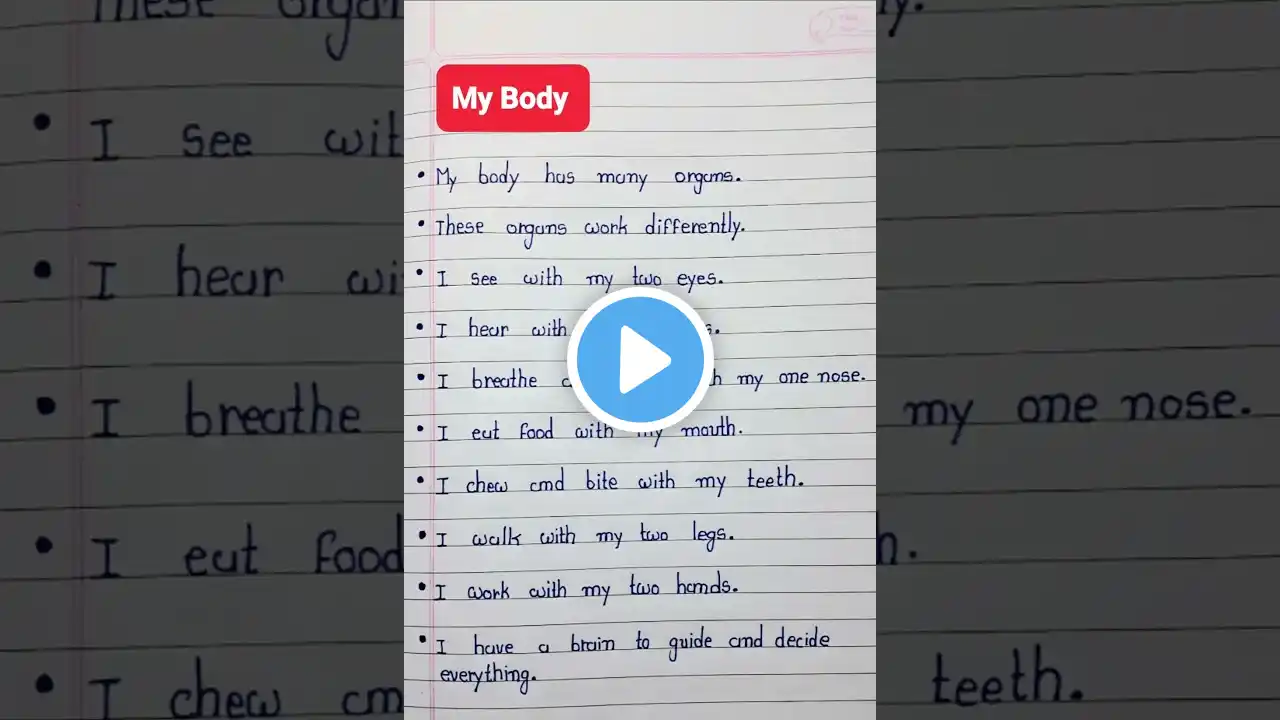 My Body
• My body has many organs.
• These organs work differently.
• I see with my two eyes.
• I hear with
• I breathe my one nose.
• I eat food with my mouth.
• I chew and bite with my teeth.
• I walk with my two legs.
• I work with my two hands.
• I have a brain to guide and decide
everything.
These organs
• I see
• I hear
• I breathe my one nose.
• I eat food
• I chew teeth.